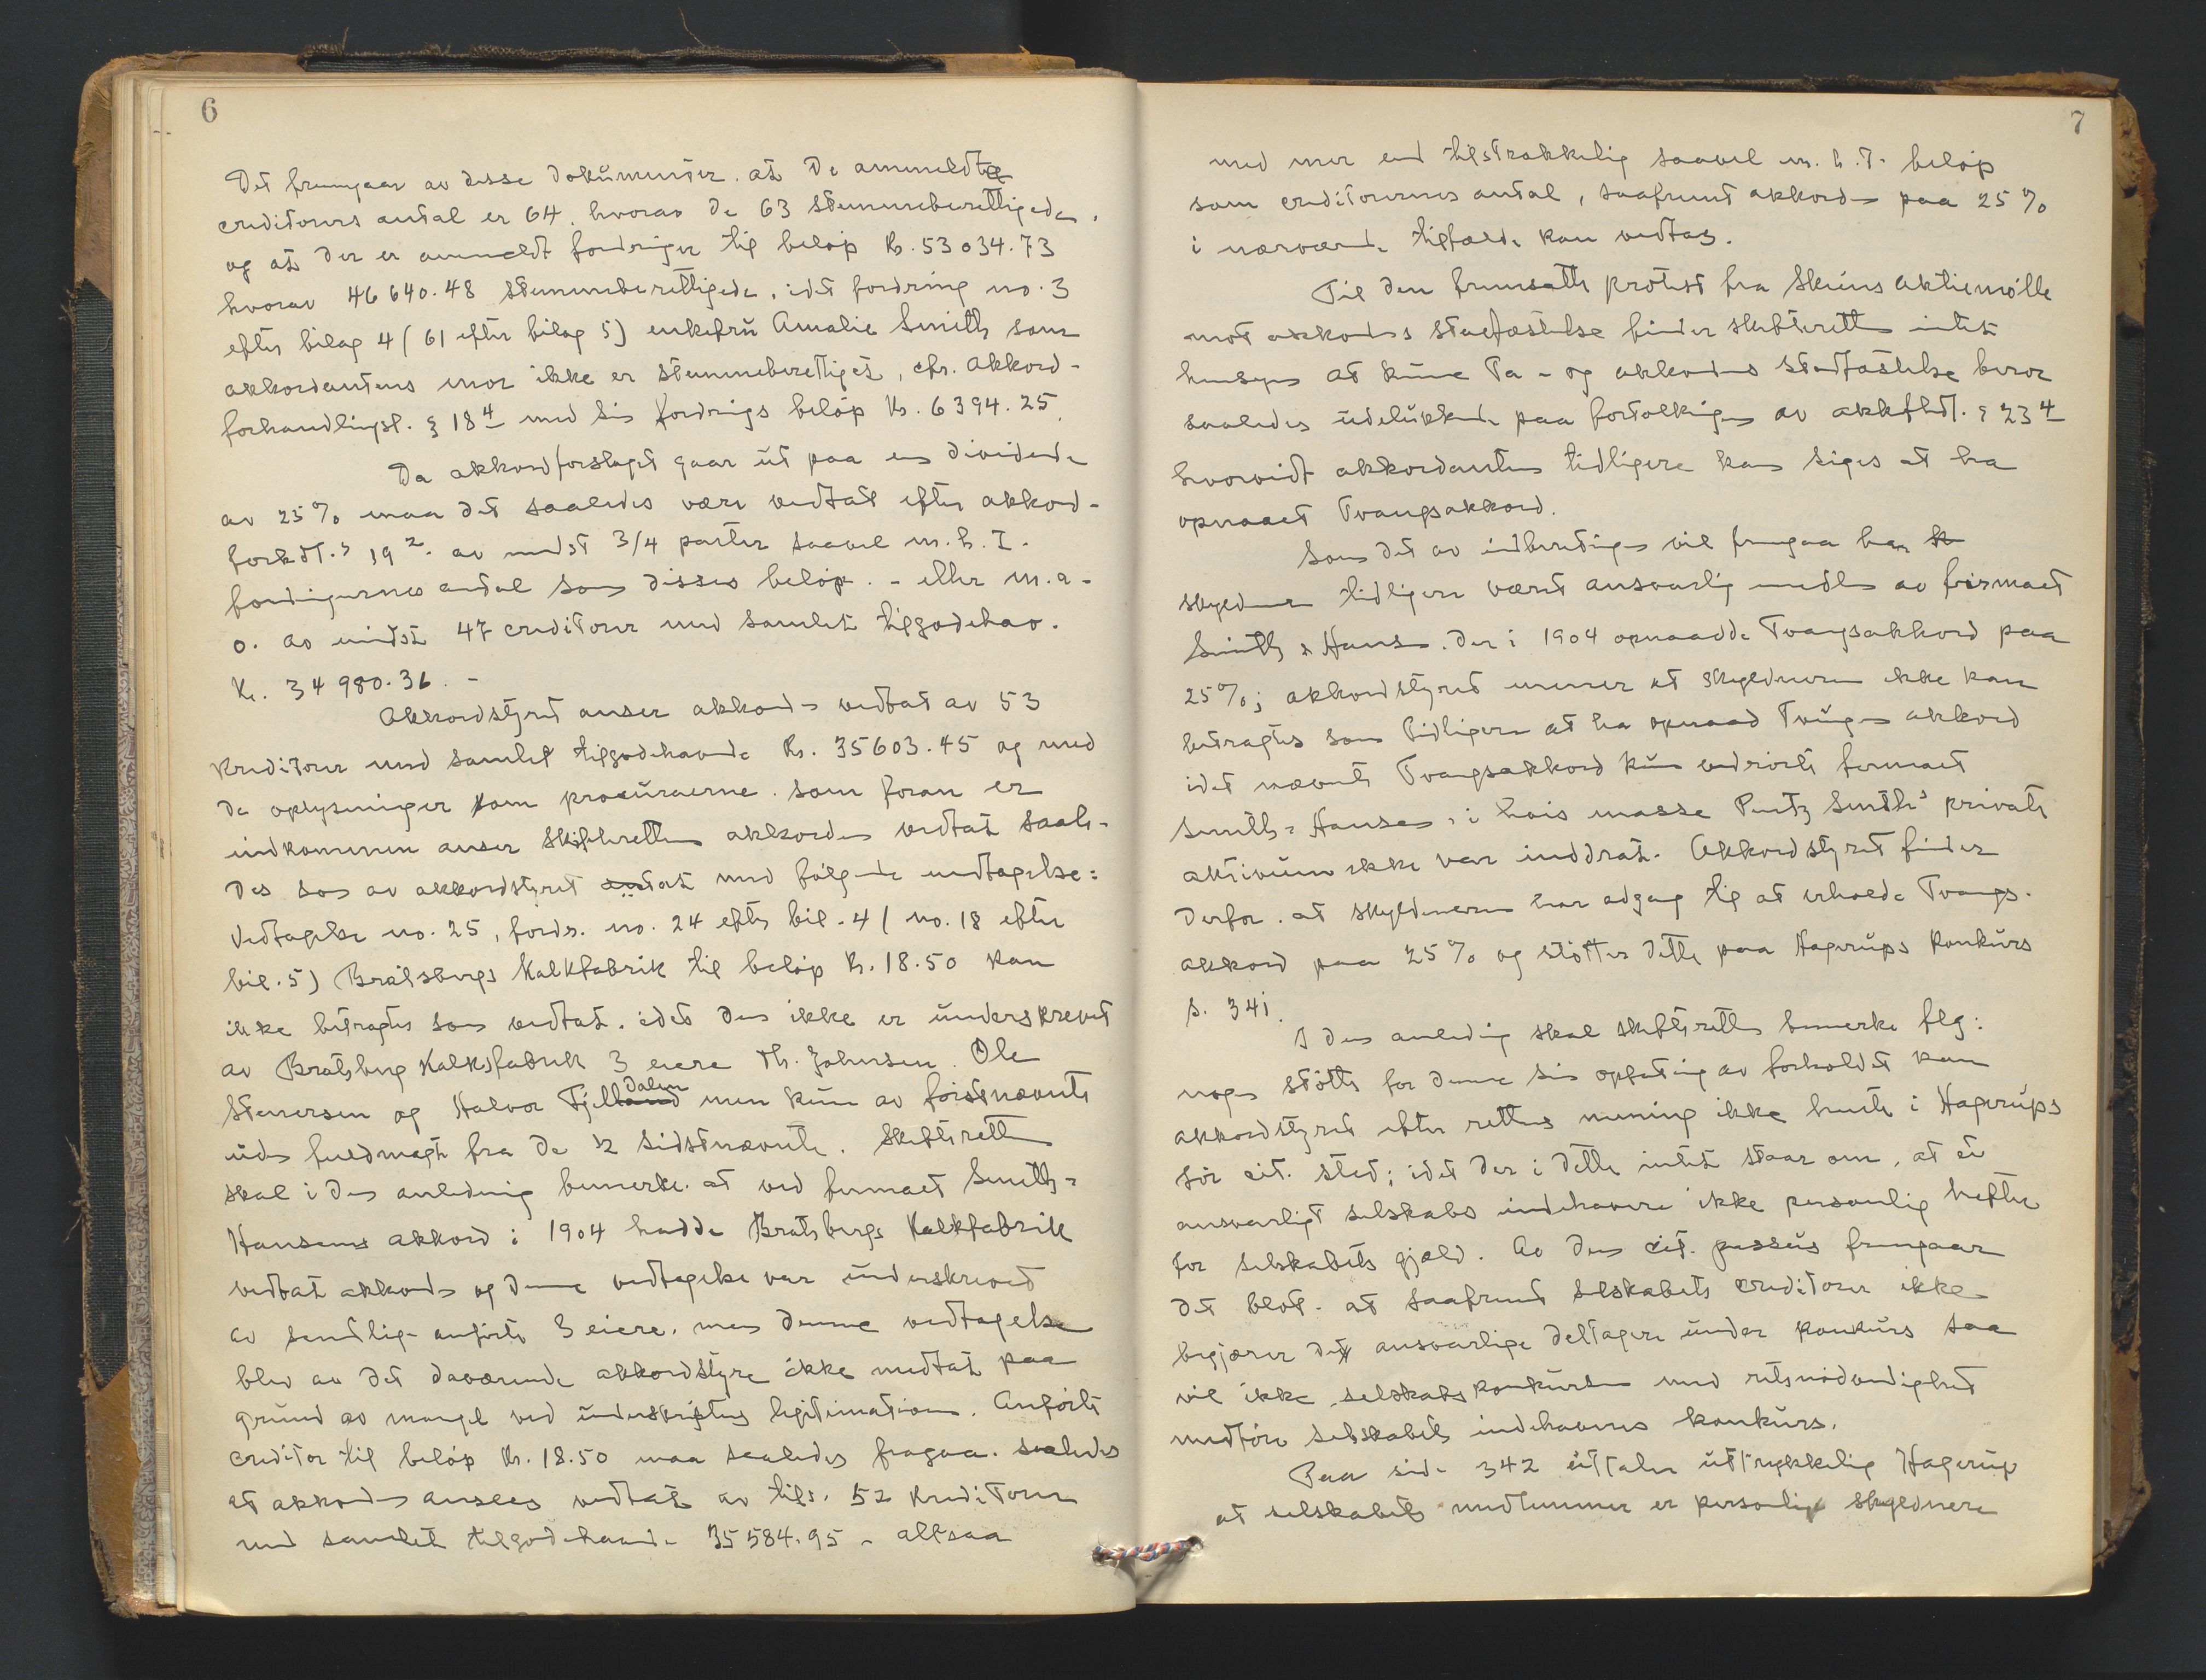 6
Det fremgaar av disse Dokumenter. at De anmeldte
creditorers antal er 64. hvorav De 63 stemmeberettigede.
og at Der er anmeldt fordringer til beløp Kr. 53034.73
hvorav 46640.48 stemmeberettigede. idet fordring no. 3
efter bilag 4 (61 efter bilag 5) enkefru Amalie Smith som
akkordantens mor ikke er stemmeberettiget, cfr. Akkord-
forhandlingsl. § 18 4 med sin fordrings beløp Kr. 6394.25.
Da akkordforslaget gaar ut paa en dividende
av 25% maa det saaledes være vedtat efter akkord-
19 2. av mindst 3/4 parter saavel m. h. t.
fordringernes antal som disses beløp. - eller m. a.
o. av mindst 47 creditorer med samlet tilgodehav.
Kr. 34980.36. -
Akkordstyret anser akkorden vedtat av 53
Kreditorer med samlet tilgodehavende Kr. 35603.45 og med
De oplysninger om procuraerne. som foran er
indkommen anser Skifteretten akkorden vedtat saale-
des som av akkordstyret med følgende undtagelse:
Vedtagelse no. 25, fordr. no. 24 efter bil. 4 (no. 18 efter
bil. 5) Bratsbergs Kalkfabrik til beløp Kr. 18.50 kan
ikke betragtes som vedtat. idet Den ikke er underskrevet
av Bratsberg Kalksfabrik 3 eiere Th. Johnsen. Ole
Stenersen og Halvor Fjelldalen men kun av førstnævnte
uden fuldmagt fra De 2 sidstnævnte. Skifteretten
skal i Den anledning bemerke. at ved firmaet Smith &
Hansens akkord i 1904 hadde Bratsbergs Kalkfabrik
vedtat akkorden og Denne vedtagelse var underskrevet
av samtlige anførte 3 eiere. men Denne vedtagelse
blev av Det daværende akkordstyre ikke medtat paa
grund av mangel ved underskriftens legitimation. Anførte
creditor til beløp Kr. 18.50 maa saaledes fragaa. saaledes
at akkorden ansees vedtat av tils. 52 Kreditorer
med samlet tilgodehavende 35584.95 - altsaa
7
med mer end tilstrækkelig saavel m. h. t. beløp
som creditorernes antal, saafremt akkorden paa 25%
i nærværende tilfælde kan vedtas.
Til den fremsatte protest fra Skiens Aktiemølle
mot akkordens stadfæstelse finder skifteretten intet
hensyn at kunne Ta - og akkordens stadfæstelse beror
saaledes udelukkende paa fortolkingen av § 23 4
hvorvidt akkordanten tidligere kan siges at ha
opnaaet Tvangsakkord.
Som det av indberetningen vil fremgaa har
skyldneren tidligere været ansvarlig medlem av firmaet
Smith & Hansen. Der i 1904 opnaadde Tvangsakkord paa
25%; akkordstyret mener at skyldneren ikke kan
betragtes som Tidligere at ha opnaad Tvungen akkord
idet nævnte Tvangsakkord kun vedrørte firmaet
Smith & Hansen, i hvis masse Smith's private
aktivum ikke var inddrat. Akkordstyret finder
Derfor. at skyldneren har adgang til at erholde Tvangs-
akkord paa 25% og støtter dette paa Hagerups Konkurs
s. 341.
I Den anledning skal skifteretten bemerke flg:
nogen støtte for denne sin opfatning av forholdet kan
akkordstyret efter rettens mening ikke hente i Hagerups
før cit. sted; idet Der i dette intet staar om, at et
ansvarligt selskabs indehavere ikke personlig hefter
for selskabets gjæld. Av Den cit. passus fremgaar
det blot. at saafremt selskabets creditorer ikke
begjærer det ansvarlige deltagere under konkurs saa
vil ikke selskabskonkursen med retsnødvendighet
medføre selskabets indehaveres konkurs.
Paa side 342 uttaler uttrykkelig Hagerup
at selskabets medlemmer er personlig skyldnere